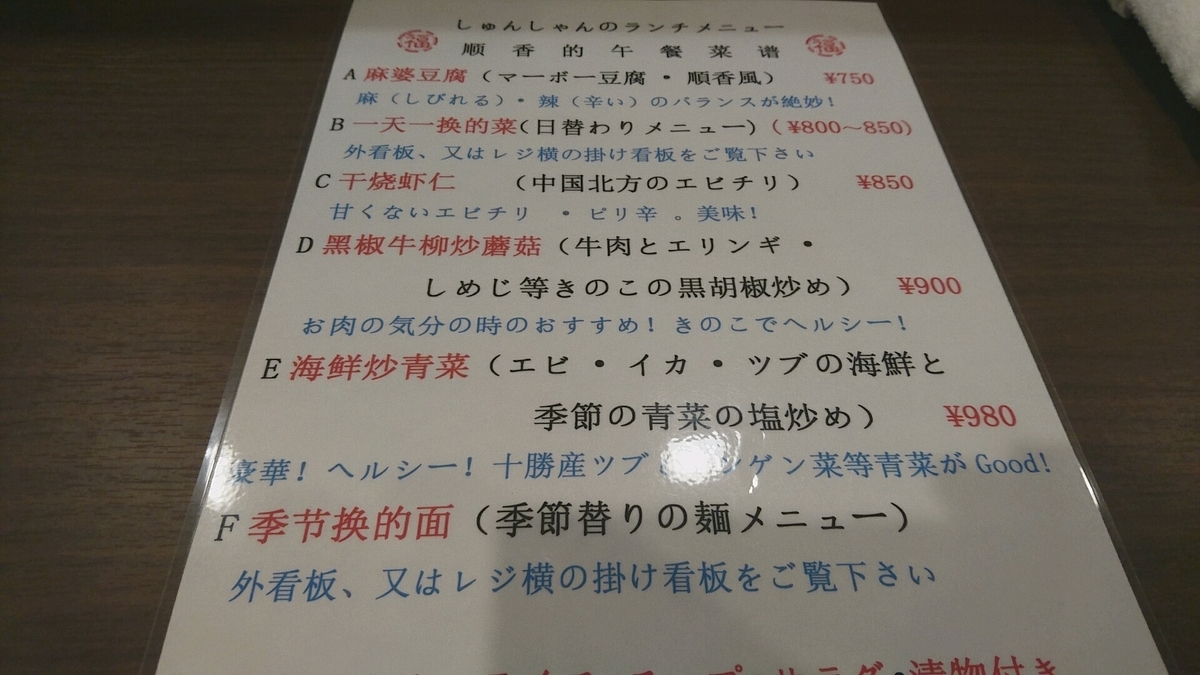 しゅんしゃんのランチメニュー
福 順香的午餐菜谱 福
A 麻婆豆腐(マーボー豆腐・順香風) ¥750
麻(しびれる)・辣(辛い)のバランスが絶妙!
B 一天一换的菜(日替わりメニュー)(¥800～850)
外看板、又はレジ横の掛け看板をご覧下さい
C 干烧虾仁 (中国北方のエビチリ) ¥850
甘くないエビチリ ・ピリ辛。美味!
D 黑椒牛柳炒蘑菇(牛肉とエリンギ・
しめじ等きのこの黒胡椒炒め) ¥900
お肉の気分の時のおすすめ!きのこでヘルシー!
E 海鲜炒青菜(エビ・イカ・ツブの海鮮と
季節の青菜の塩炒め) ¥980
豪華!ヘルシー!十勝産ツブ ゲン菜等青菜がGood!
F 季节换的面(季節替りの麺メニュー)
外看板、又はレジ横の掛け看板をご覧下さい
サラダ・漬物付き